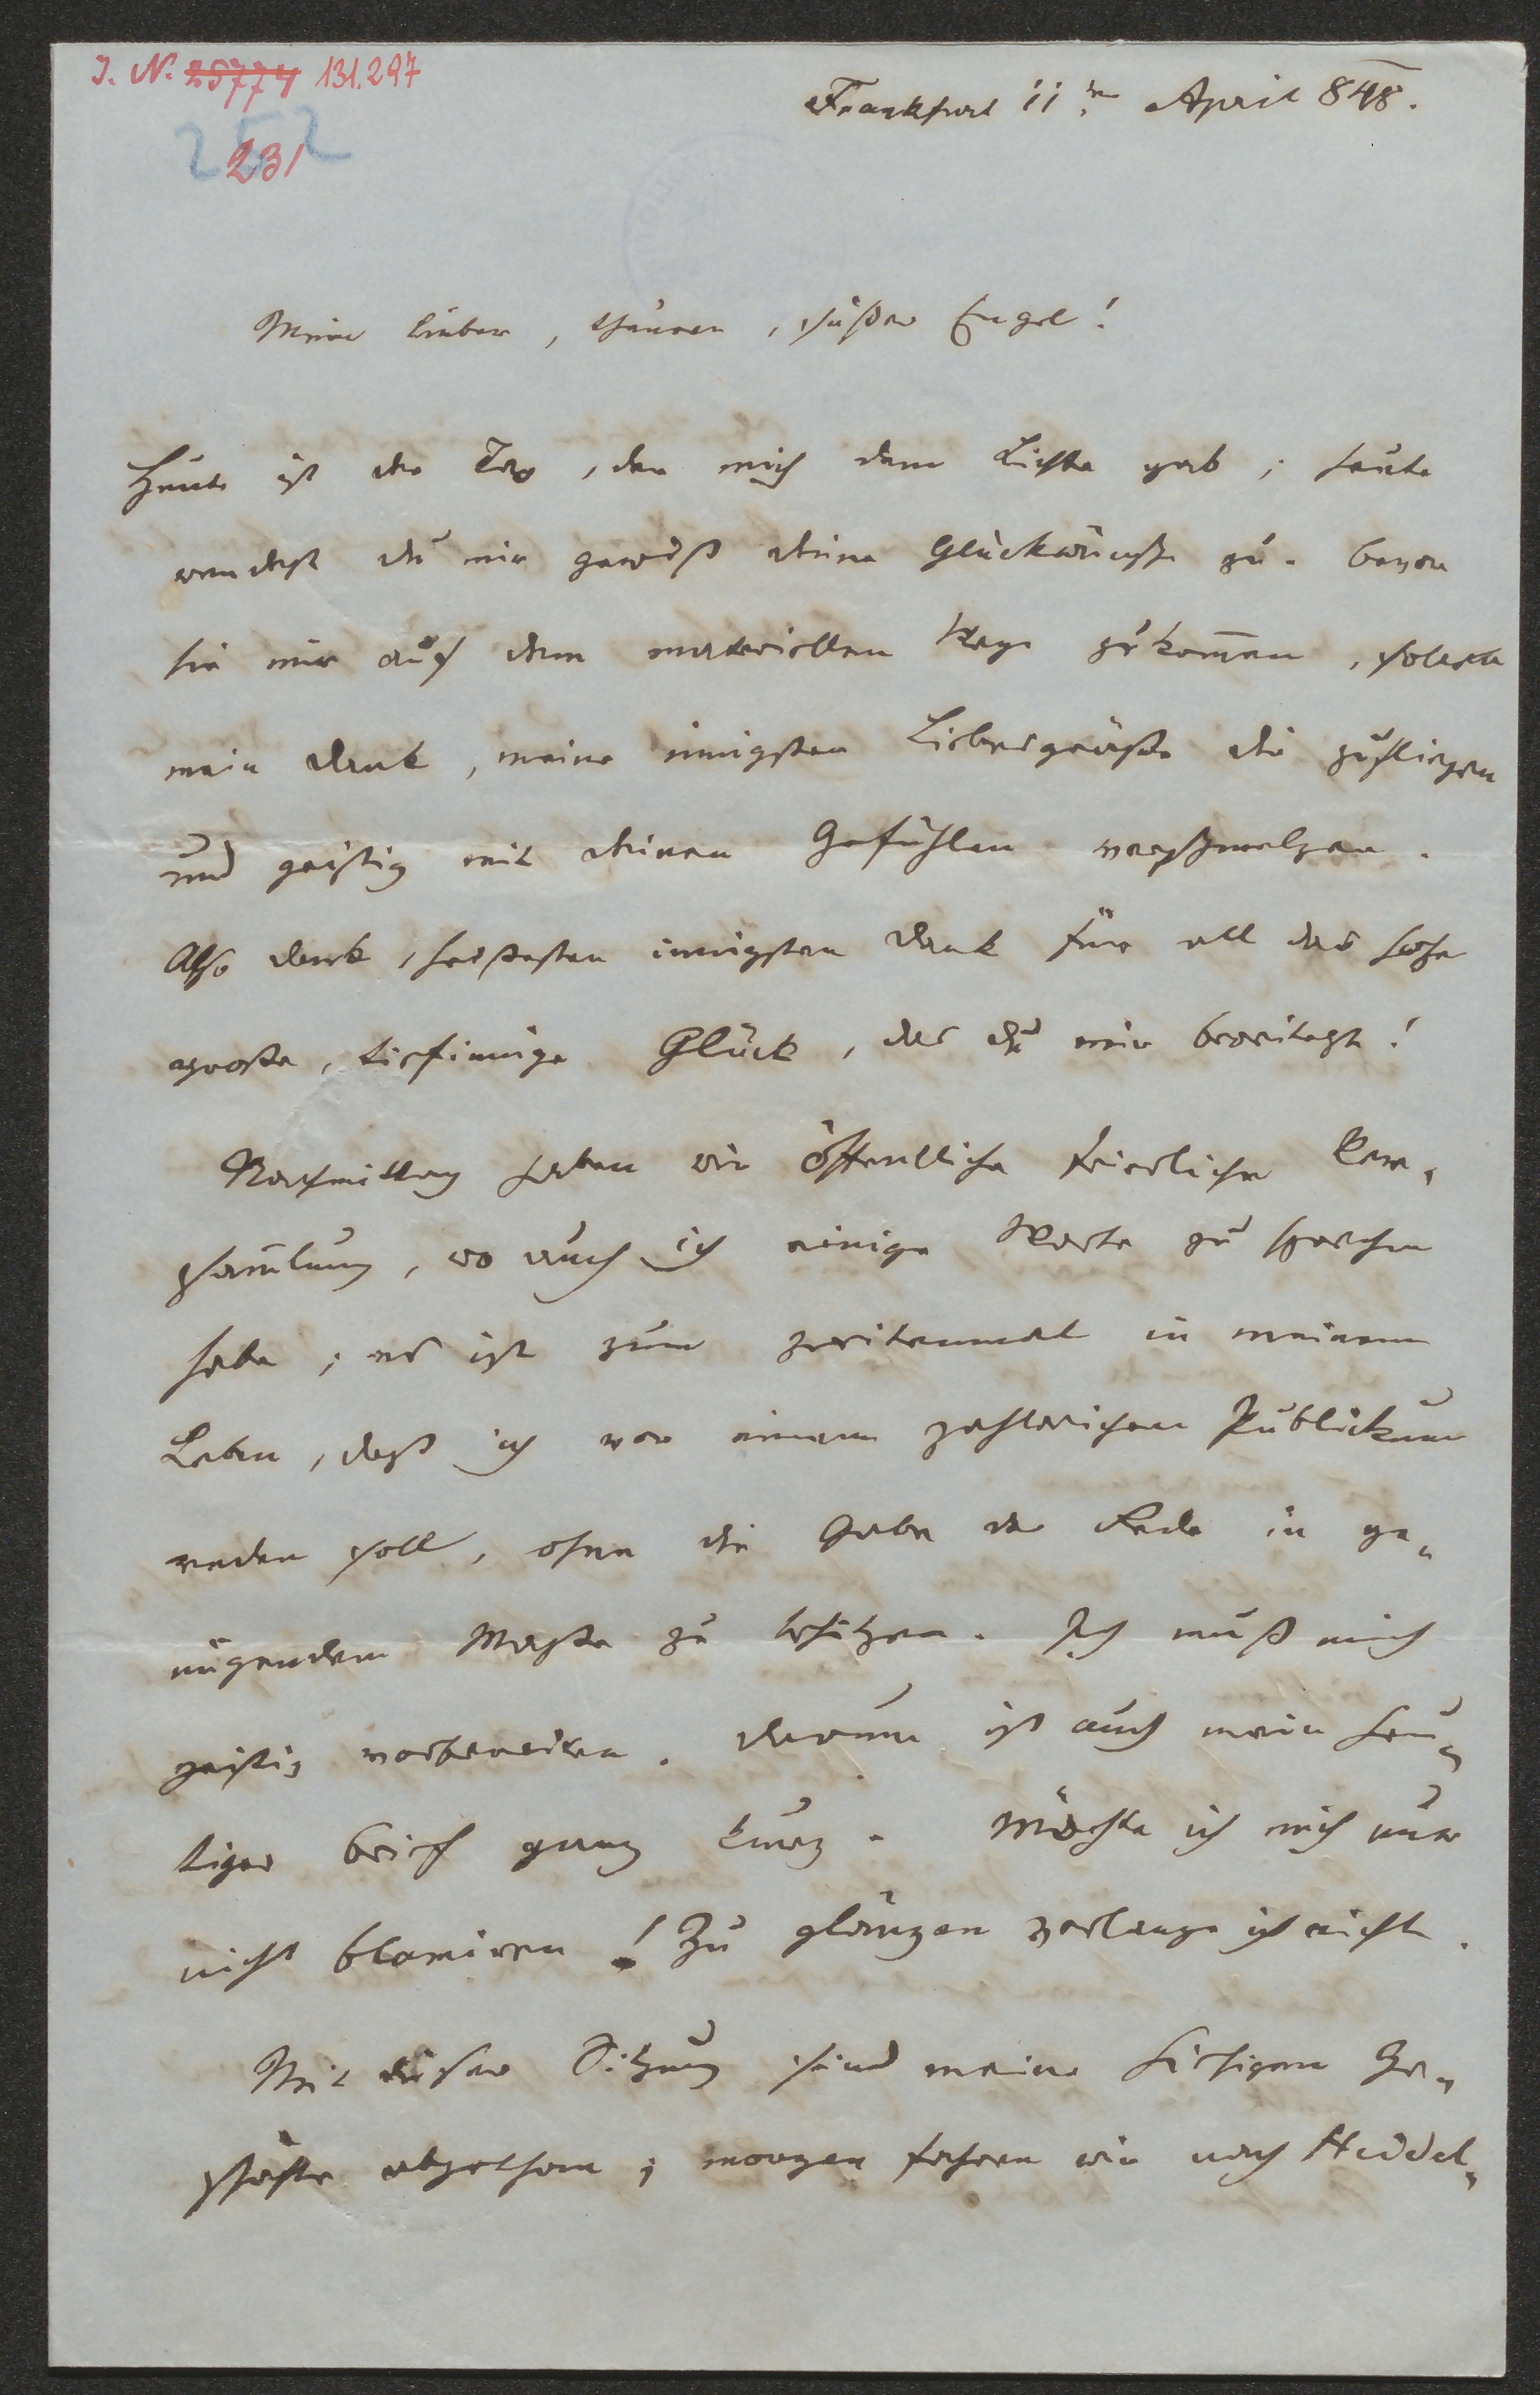 J. N. 25774 131.297
252
231
Frankfurt 11.n April 848.
Mein lieber, theurer, süßer Engel!
Heute ist der Tag, der mich dem Lichte gab; heute
wendest du mir gewiß deine Glückwünsche zu. Bevor
sie mir auf dem materiellen Wege zukom̄en, sollen
mein Dank, meine innigsten Liebesgrüße dir zufliegen
und geistig mit deinen Gefühlen verschmelzen.
Also Dank, heißesten innigsten Dank für all das hohe
große, tiefinnige Glück, das du mir bereitest!
Nachmittag haben wir öffentliche feierliche Ver„
sam̄lung, wo auch ich einige Worte zu sprechen
habe; es ist zum zweitenmal in meinem
Leben, daß ich vor einem zahlreichen Publickum
reden soll, ohne die Gabe der Rede in ge„
nügendem Maße zu besitzen. Ich muß mich
geistig vorbereiten. Darum ist auch mein heu„
tiger Brief ganz kurz. Möchte ich mich nur
nicht blamiren! Zu glänzen verlange ich nicht.
Mit dieser Sitzung sind meine hiesigen Ge„
schäfte abgethan; morgen fahren wir nach Heidel„